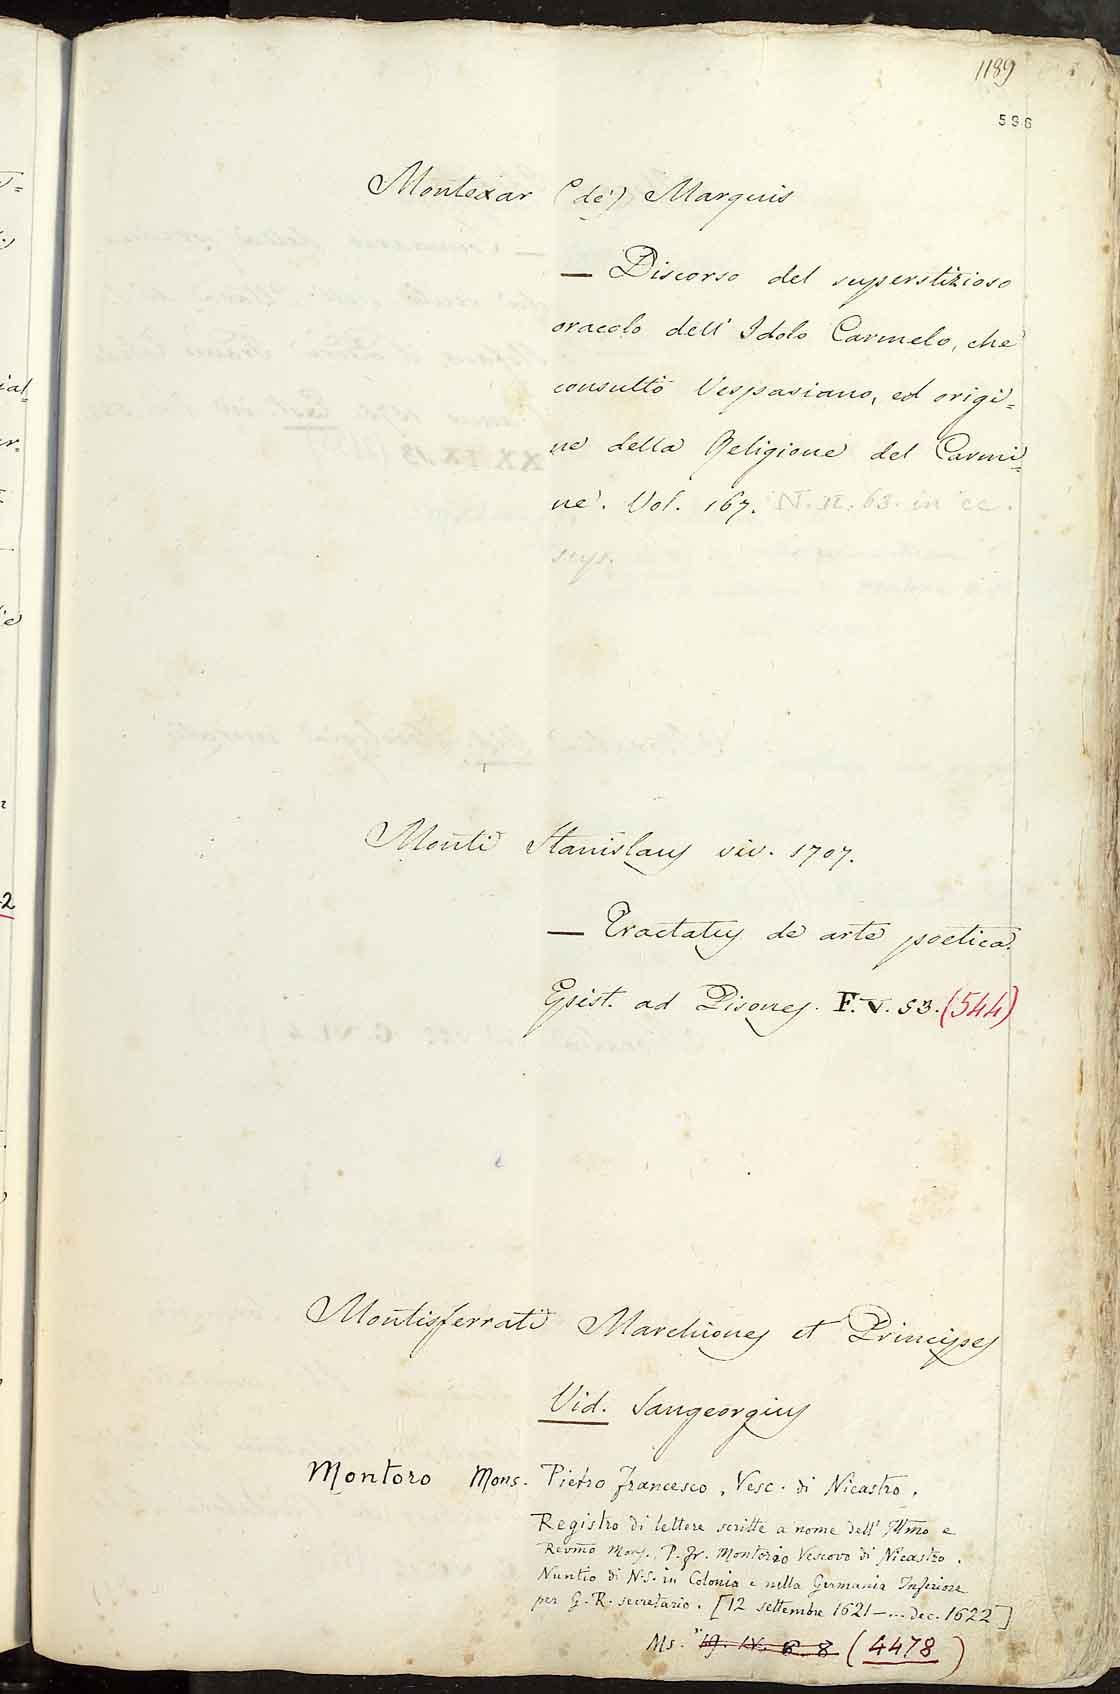 1189
596
Montexar (de) Marquis
— Discorso del superstizioso
oracolo dell' Idolo Carmelo, che
consultò Vespasiano, ed origi=
ne della Religione del Carmi=
ne. Vol. 167. N. II. 63. in cc.
seq.
Monti Stanislaus viv. 1707.
— Tractatus de arte poetica.
Epist. ad Pisones. F. V. 53. (544)
Montisferrati Marchiones et Principes
Vid. Sangeorgius
Montoro Mons. Pietro Francesco, Vesc. di Nicastro.
Registro di lettere scritte a nome dell' Illmo e
Revmo Mons. P. Fr. Montorio Vescovo di Nicastro.
Nuntio di N.S. in Colonia e nella Germania Inferiore
per G. R. secretario. [12 settembre 1621 — ... dec. 1622]
Ms. (4478)